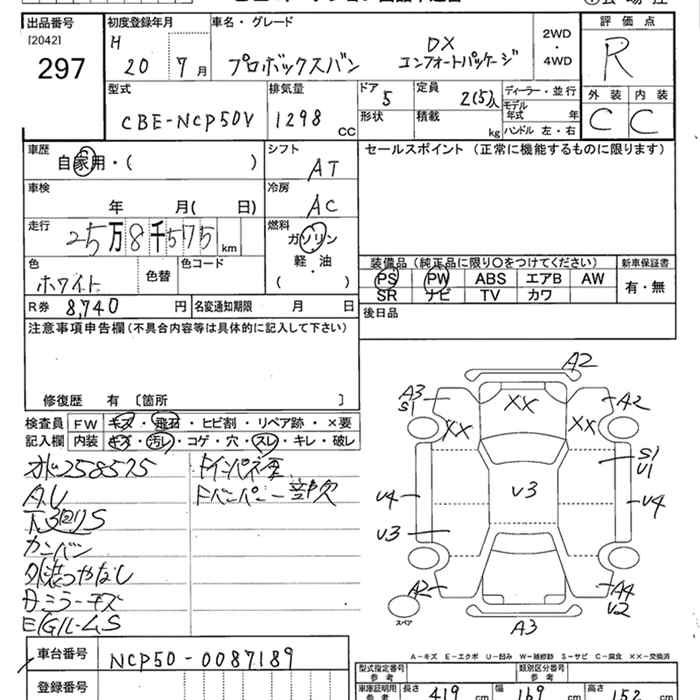 出品番号 初度登録年月 車名・グレード 2WD・4WD 評価点
[2042] H 20 7月 プロボックスバン DX コンフォートパッケージ R
297
型式 排気量 ドア 定員 ディーラー・並行 外装 内装
CBE-NCP50V 1298 CC 5 2(5)人 モデル年式 年 C C
形状 積載 kg ハンドル 左・右
車歴 シフト セールスポイント (正常に機能するものに限ります)
自家用・( ) AT
車検 冷房
年 月( 日) AC
走行 燃料
25万8千575 km ガソリン
軽・油
( )
色 色替 色コード
ホワイト
装備品 (純正品に限り○をつけてください) 新車保証書
PS PW ABS エアB AW 有・無
SR ナビ TV カワ
R券 8,740 円 名変通知期限 月 日
後日品
注意事項申告欄 (不具合内容等は具体的に記入して下さい)
修復歴 有 〔箇所 〕
検査員 FW キズ・飛石・ヒビ割・リペア跡・×要
記入欄 内装 キズ・汚レ・コゲ・穴・スレ・キレ・破レ
258575
A.U
カンバン
外装つやなし
ミラーキズ
E/Gルーム S
A2
A3 S1 XX A2
XX XX
S1 V1
V4 V3 V4
V3
A2 A4 V2
スペア A3
A-キズ E-エクボ U-凹み W-補修跡 S-サビ C-腐食 XX-交換済
車台番号 NCP50-0087189
登録番号
型式指定番号 類別区分番号
車庫証明用参考 長さ 419 cm 幅 169 cm 高さ 152 cm